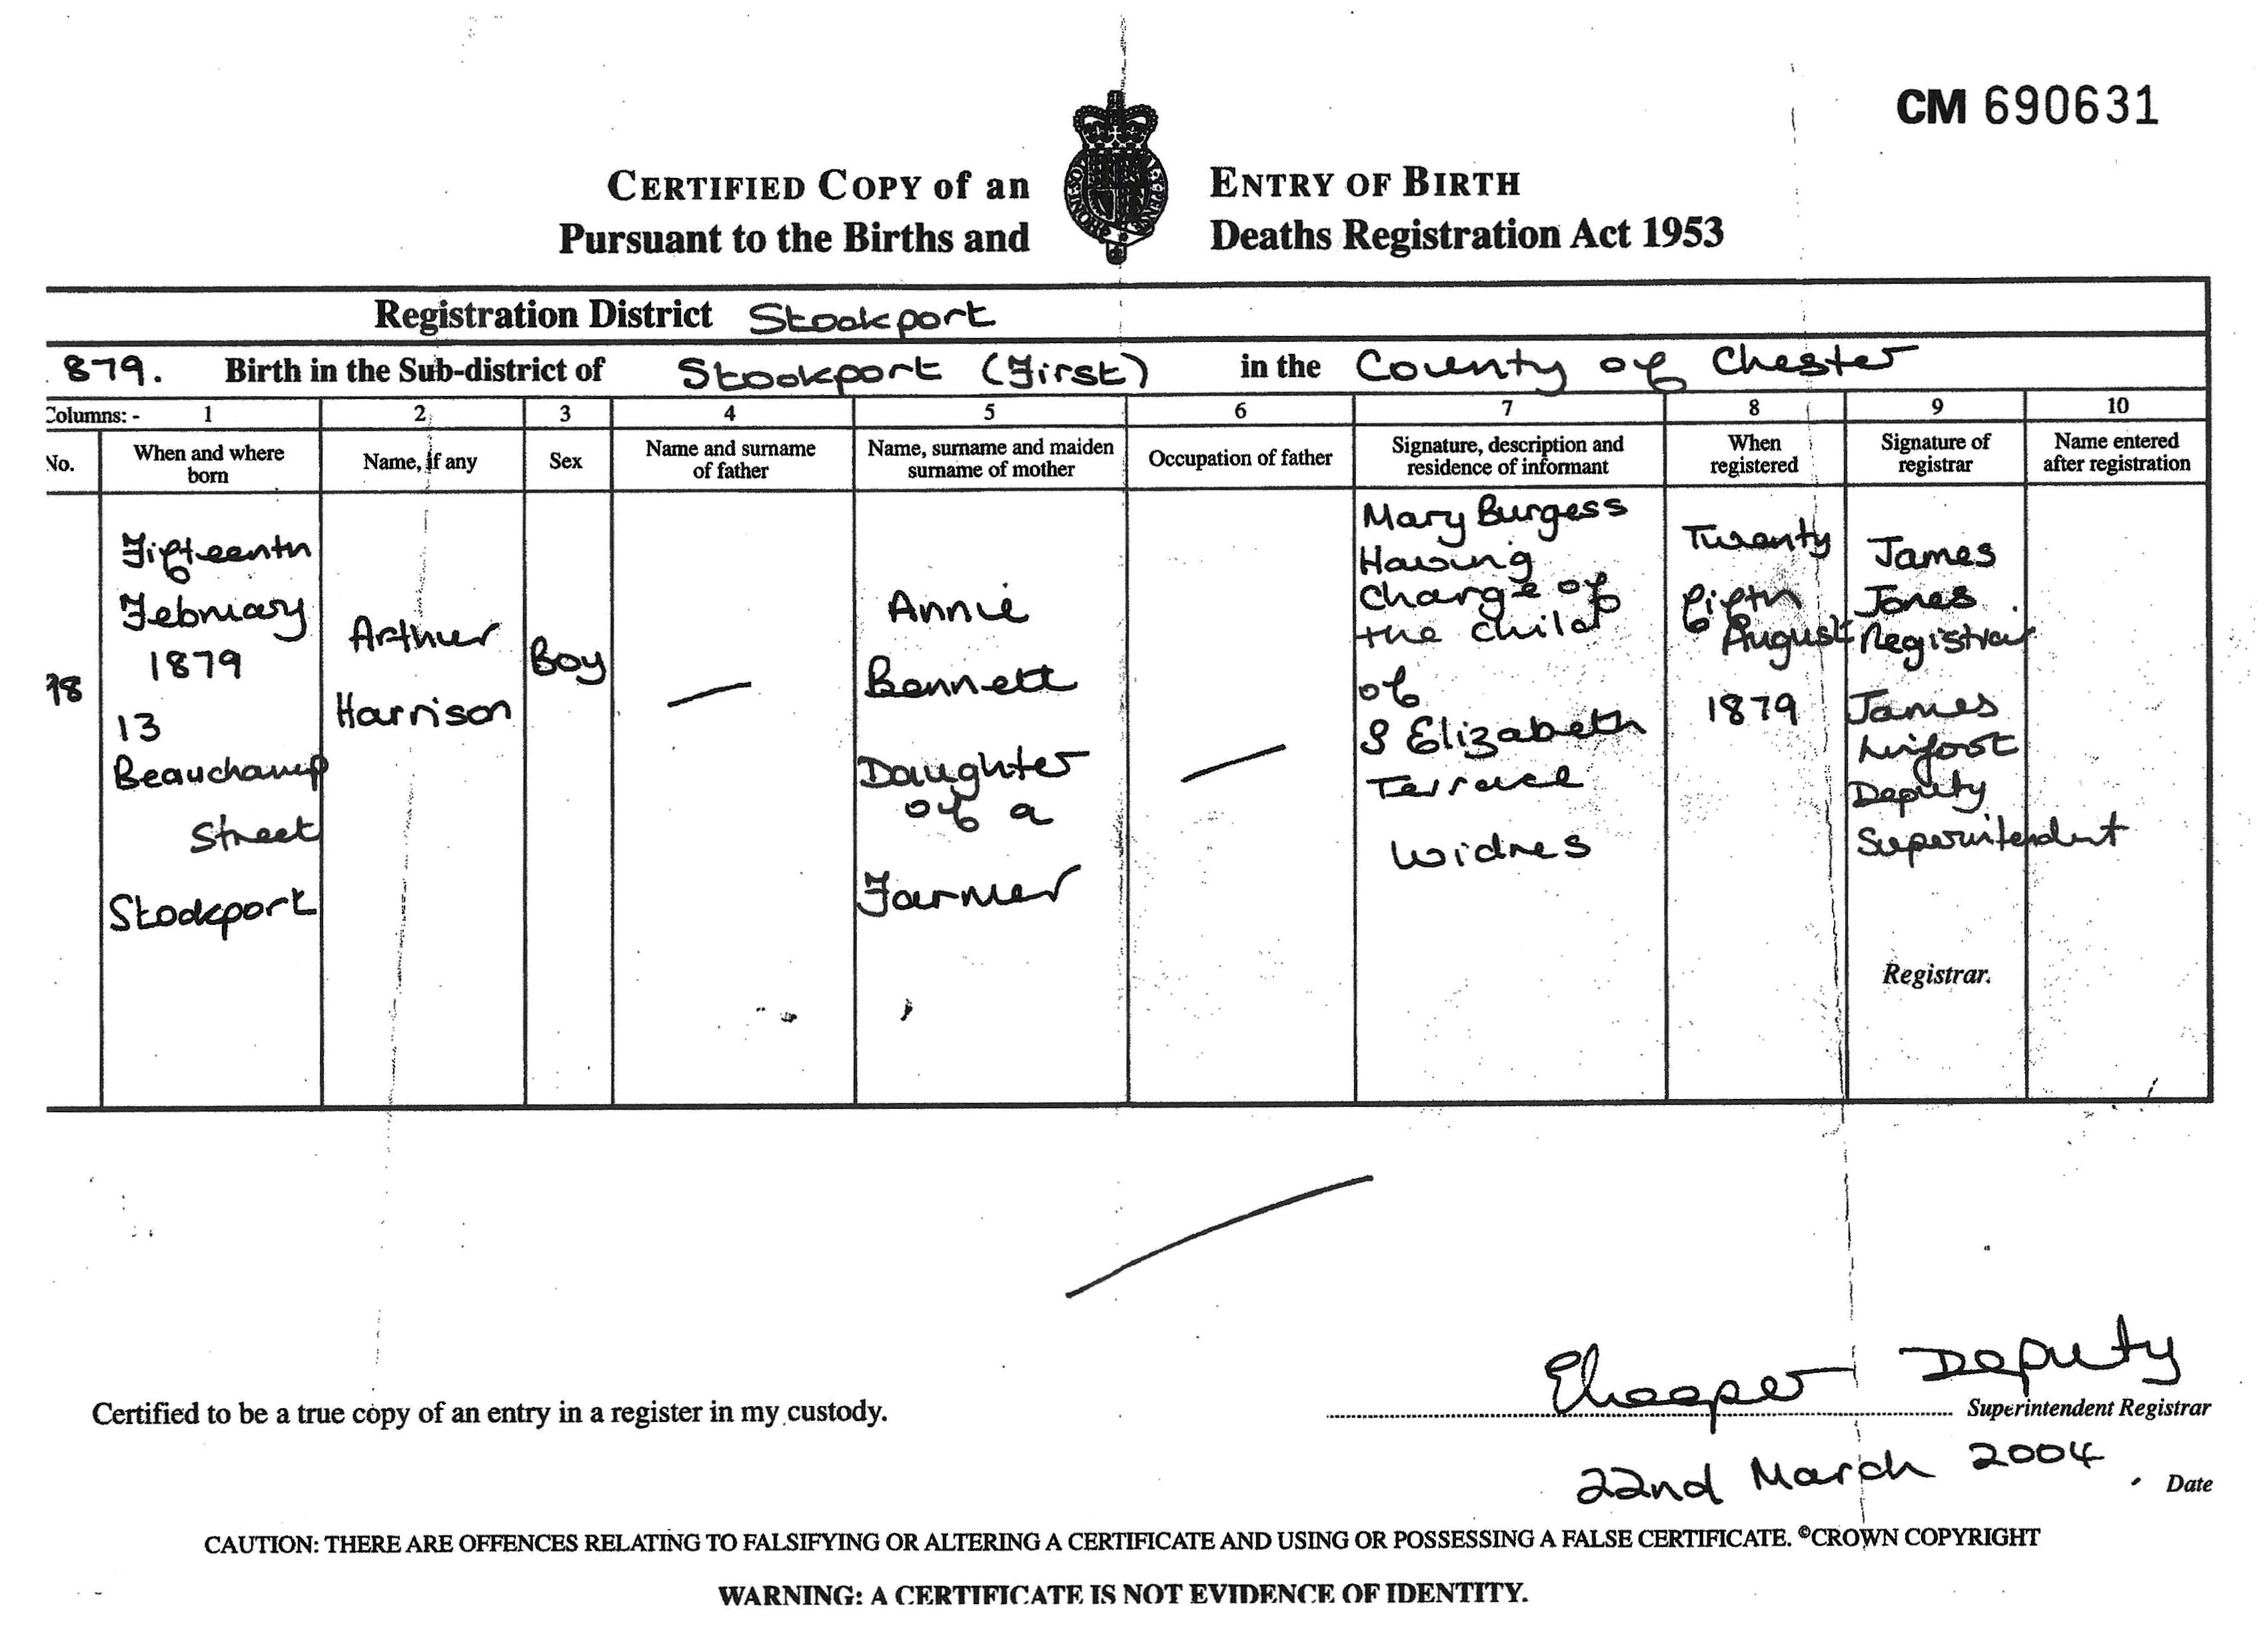 CM 690631
CERTIFIED COPY of an ENTRY OF BIRTH
Pursuant to the Births and Deaths Registration Act 1953
Registration District Stockport
879. Birth in the Sub-district of Stockport (First) in the County of Chester
Columns: - 1 2 3 4 5 6 7 8 9 10
No.
When and where
born
Name, if any
Sex
Name and surname
of father
Name, surname and maiden
surname of mother
Occupation of father
Signature, description and
residence of informant
When
registered
Signature of
registrar
Name entered
after registration
98
Fifteenth
February
1879
13
Beauchamp
Street
Stockport
Arthur
Harrison
Boy
Annie
Bennett
Daughter
of a
Farmer
Mary Burgess
Having
charge of
the child
of
8 Elizabeth
Terrace
Widnes
Twenty
fifth
August
1879
James
Jones
Registrar
James
Deputy
Superintendent
Registrar.
Certified to be a true copy of an entry in a register in my custody.
Deputy
Superintendent Registrar
22nd March 2004
Date
CAUTION: THERE ARE OFFENCES RELATING TO FALSIFYING OR ALTERING A CERTIFICATE AND USING OR POSSESSING A FALSE CERTIFICATE. ©CROWN COPYRIGHT
WARNING: A CERTIFICATE IS NOT EVIDENCE OF IDENTITY.